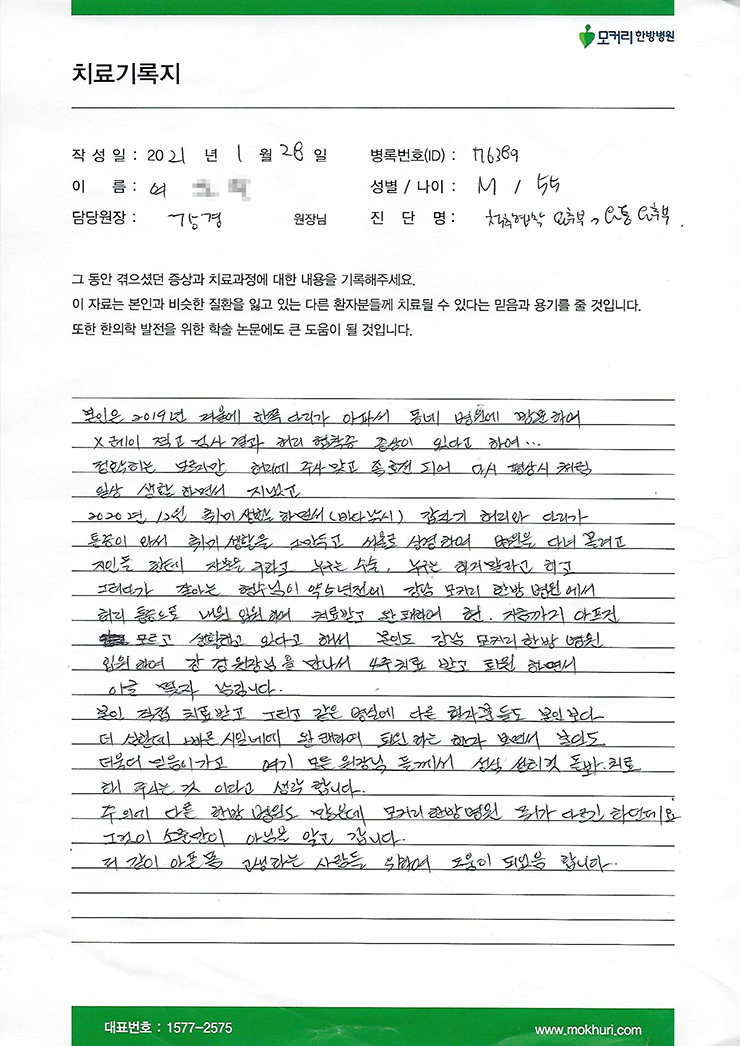 모커리한방병원
치료기록지
작 성 일 : 2021 년 1 월 28 일 병록번호(ID) : 76389
이 름 : 여 성별 / 나이 : M / 55
담당원장 : 강경 원장님 진 단 명 : 척추협착 요추부, 요통 요추부.
그 동안 겪으셨던 증상과 치료과정에 대한 내용을 기록해주세요.
이 자료는 본인과 비슷한 질환을 잃고 있는 다른 환자분들께 치료될 수 있다는 믿음과 용기를 줄 것입니다.
또한 한의학 발전을 위한 학술 논문에도 큰 도움이 될 것입니다.
본인은 2019년 겨울에 한쪽 다리가 아파서 동네 병원에 방문하여
X레이 찍고 검사 결과 허리 협착증 증상이 있다고 하여...
정확히는 모르지만 허리에 주사 맞고 좀 호전 되어 다시 평상시 처럼
일상 생활 하면서 지냈고
2020년 12월 취미 생활 하면서(바다낚시) 갑자기 허리와 다리가
통증이 와서 취미 생활을 그만두고 서울로 상경하여 병원을 다녀 볼려고
지인들 한테 자문을 구하고 누구는 수술, 누구는 하지말라고 하고
그러다가 잘아는 형수님이 약 5년전에 강남 모커리 한방 병원에서
허리 통증으로 내원 입원 하여 치료받고 완쾌하여 현. 지금까지 아픈건
모르고 생활하고 있다고 해서 본인도 강남 모커리한방 병원
입원 하여 강경 원장님을 만나서 4주치료 받고 퇴원 하면서
이글 몇자 남깁니다.
본인 직접 치료받고 그리고 같은 병실에 다른 환자분들도 본인보다
더 심한데 빠른 시일내에 완쾌하여 퇴원하는 한자 보면서 본인도
더욱더 믿음이가고 여기 모든 원장님 들께서 성심 성의껏 돌봐.치료
해 주시는 것 이라고 생각 합니다.
주위에 다른 한방 병원도 많은데 모커리한방병원 뭐가 다르긴 하던데요
그것이 소문만이 아님을 알고 갑니다.
저 같이 아픈몸 고생하는 사람들 위하여 도움이 되었음 합니다.
대표번호 : 1577-2575 www.mokhuri.com